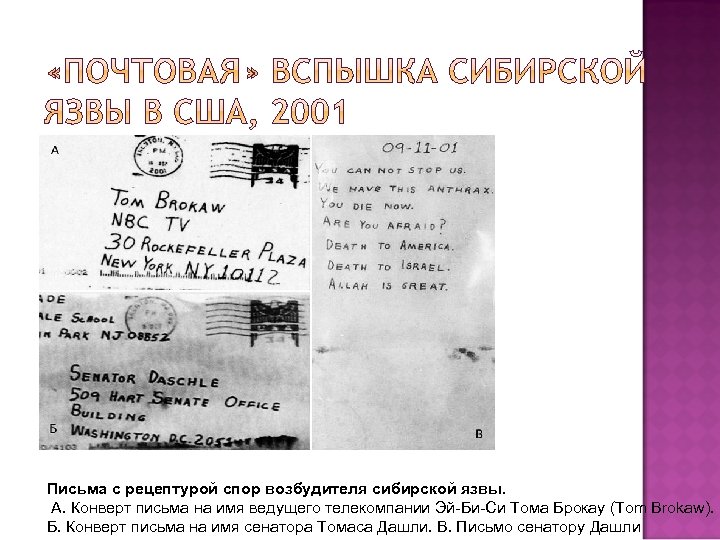 «ПОЧТОВАЯ» ВСПЫШКА СИБИРСКОЙ
ЯЗВЫ В США, 2001
А
P.M.
2001
34
TOM BROKAW
NBC TV
30 ROCKEFELLER PLAZA
NEW YORK NY 10112
ADE
ALE SCHOOL
IN PARK NJ 08852
SENATOR DASCHLE
509 HART SENATE OFFICE
BUILDING
WASHINGTON D.C. 205
Б
09-11-01
YOU CAN NOT STOP US.
WE HAVE THIS ANTHRAX.
YOU DIE NOW.
ARE YOU AFRAID?
DEATH TO AMERICA.
DEATH TO ISRAEL.
ALLAH IS GREAT.
В
Письма с рецептурой спор возбудителя сибирской язвы.
А. Конверт письма на имя ведущего телекомпании Эй-Би-Си Тома Брокау (Tom Brokaw).
Б. Конверт письма на имя сенатора Томаса Дашли. В. Письмо сенатору Дашли